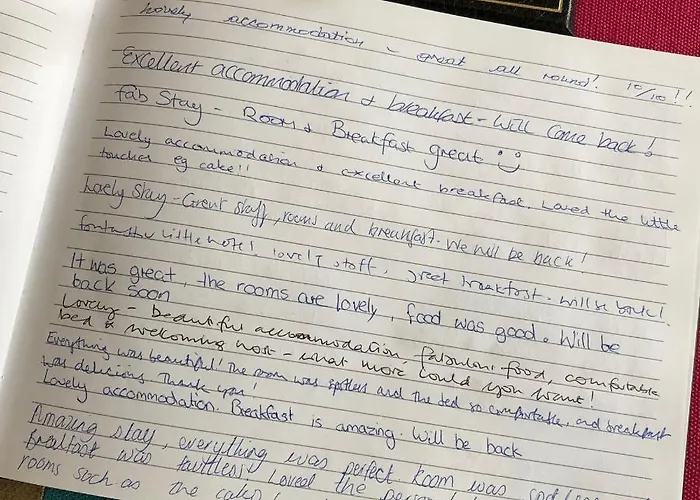 Lovely accommodation - great all round! 10/10!!
Excellent accommodation & breakfast - will come back!
Fab Stay - Room & Breakfast great
Lovely accommodation & excellent breakfast. Loved the little
touches eg cake!!
Lovely Stay - Great staff, rooms and breakfast. We will be back!
fantastic little hotel! lovely staff, great breakfast. will be back!
It was great, the rooms are lovely, food was good. Will be
back soon
Lovely - beautiful accommodation, fabulous food, comfortable
bed & welcoming host - what more could you want!
Everything was beautiful! The room was spotless and the bed so comfortable, and breakfast
was delicious. Thank you!
Lovely accommodation. Breakfast is amazing. Will be back
Amazing stay, everything was perfect. Room was
breakfast was faultless. Loved the
rooms such as the cakes!